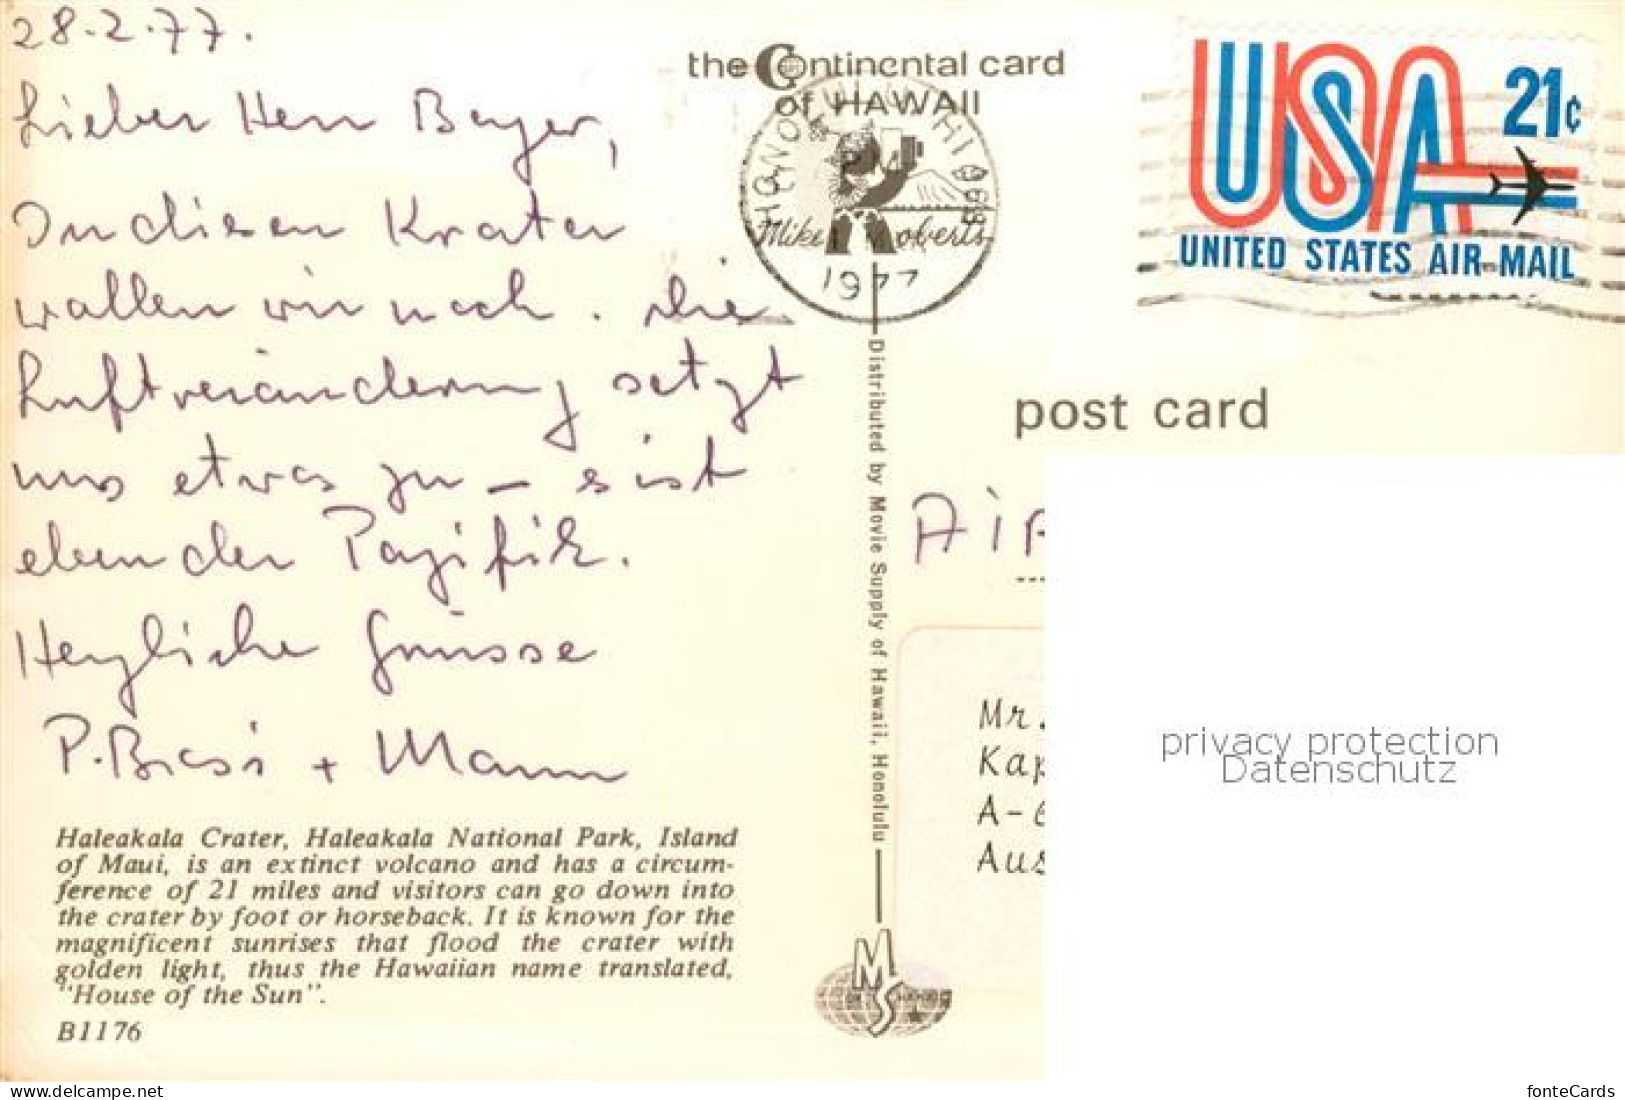 28.2.77.
Lieber Herr Berger,
In diesen Krater
wollen wir noch. Die
Luftveränderung setzt
uns etwas zu – es ist
eben der Pazifik.
Herzliche Grüsse
P. + Mann
Haleakala Crater, Haleakala National Park, Island
of Maui, is an extinct volcano and has a circum-
ference of 21 miles and visitors can go down into
the crater by foot or horseback. It is known for the
magnificent sunrises that flood the crater with
golden light, thus the Hawaiian name translated,
"House of the Sun".
B1176
the Continental card
of HAWAII
HONOLULU HI 968
PM
1977
Mike Roberts
Distributed by Movie Supply of Hawaii, Honolulu
MS
USA 21c
UNITED STATES AIR MAIL
post card
AIR
Mr.
Kap
A-6
Aus
privacy protection
Datenschutz
fonteCards
https://www.delcampe.net